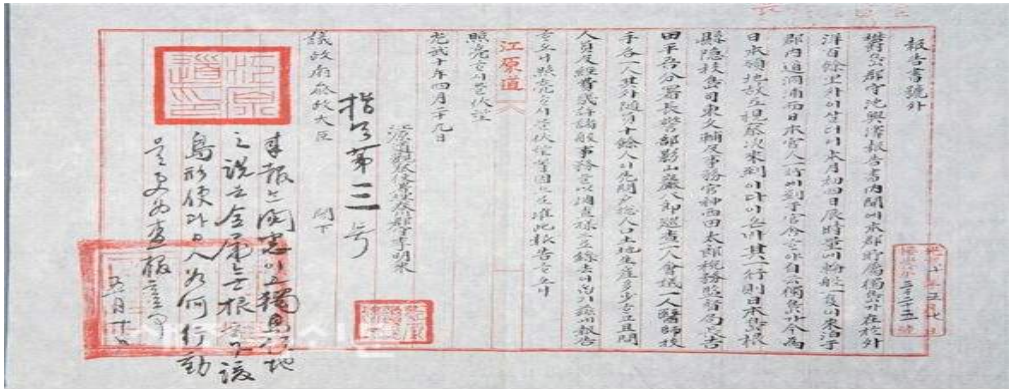 報告書號外
鬱島郡守沈興澤報告書內開에本郡所屬獨島가在於外
洋百餘里外이살더니本月初四日辰時量에輪船一隻이來泊于
郡內道洞浦而日本官人一行이到于官舍ᄒᆞ야自云獨島가今爲
日本領地故로視察次來到이다이온바其一行則日本島根
縣隱技島司東文輔及事務官神西田太郞稅務監督局長吉
田平吾分署長警部影山巖八郞巡査一人會議一人醫師技
手各一人其外隨員十餘人이先問戶總人口土地生産多少ᄒᆞ고且問
人員及經費幾許諸般事務를以調査樣으로錄去이압기玆에報告
ᄒᆞ오니照亮ᄒᆞ시믈伏望等因으로准此報告ᄒᆞ오니
照亮ᄒᆞ시믈伏望
江原道
光武十年四月二十九日
江原道觀察使署理春川郡守李明來
議政府參政大臣 閣下
指令第三号
來報는閱悉이고獨島領地
之說은全屬無根ᄒᆞ나該
島形便과日人如何行動
을更爲査報ᄒᆞᆯ事
五月十日